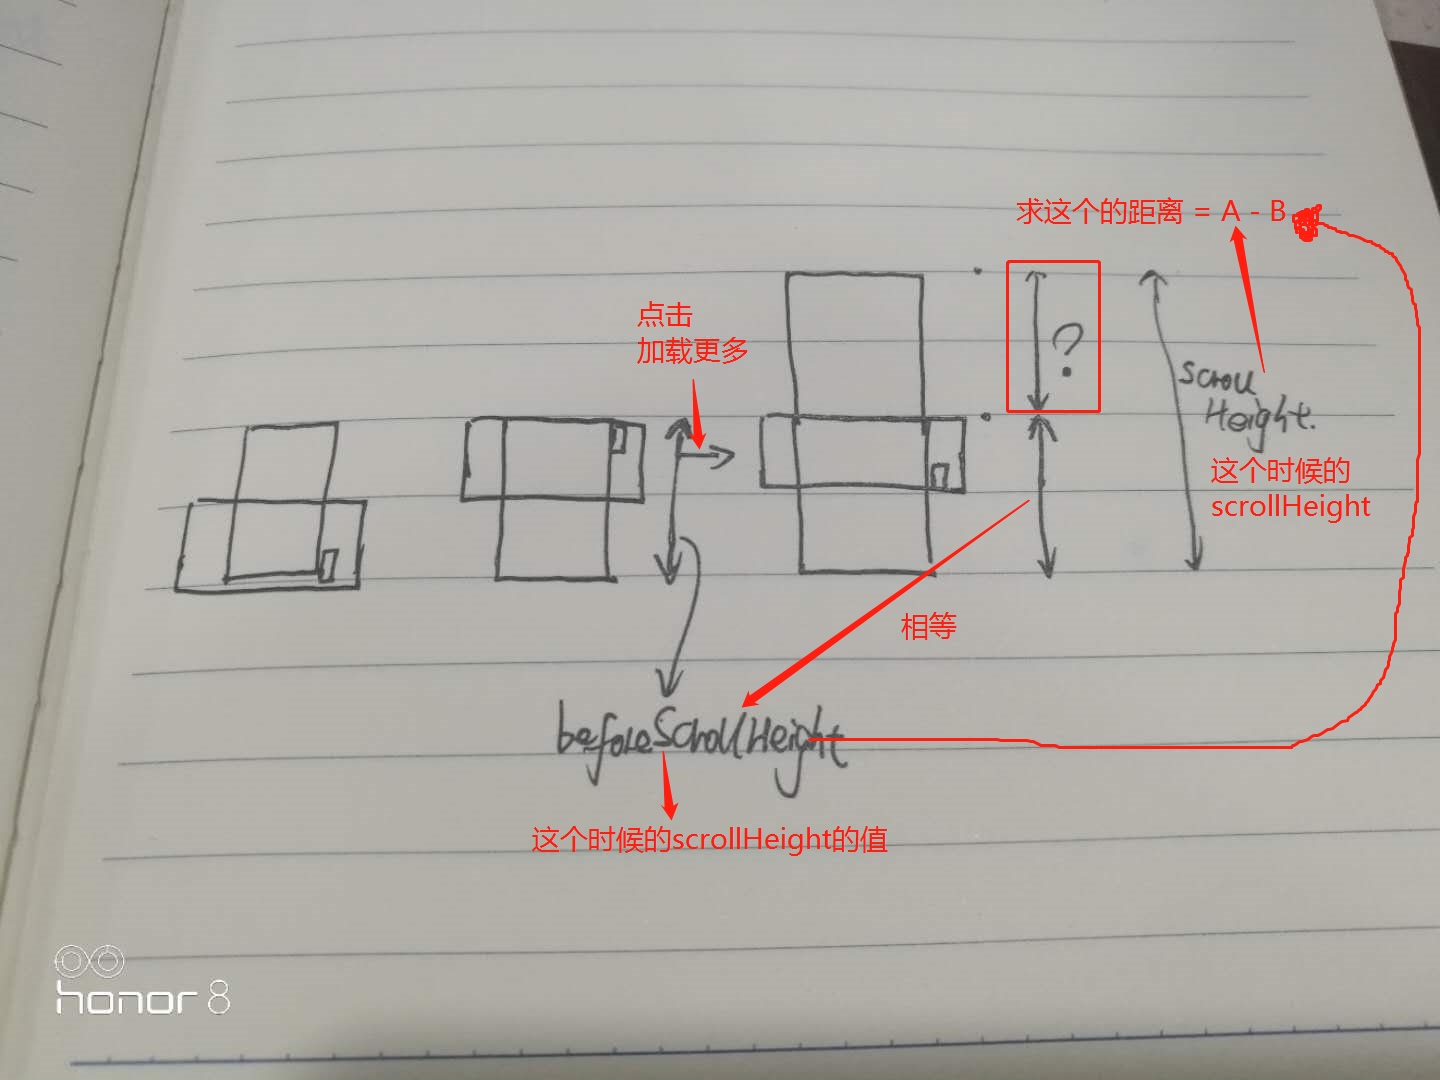 求这个的距离 = A - B
点击
加载更多
?
scroll
Height.
这个时候的
scrollHeight
相等
beforeScrollHeight
这个时候的scrollHeight的值
honor 8